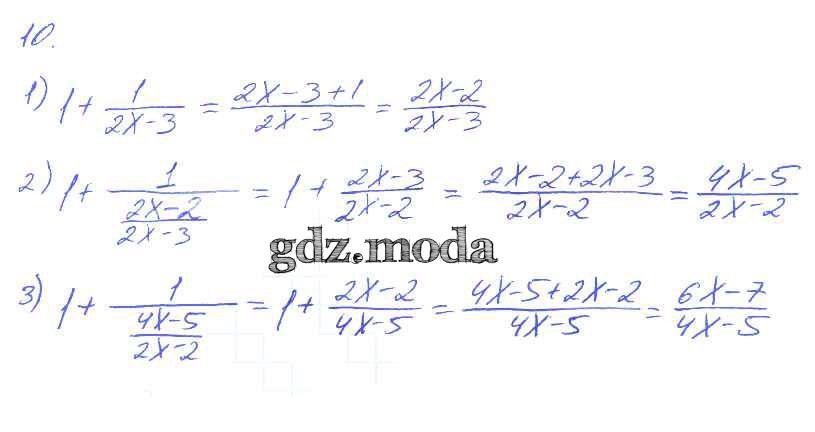 10.
1) 1 + 1/(2x-3) = (2x-3+1)/(2x-3) = (2x-2)/(2x-3)
2) 1 + 1/((2x-2)/(2x-3)) = 1 + (2x-3)/(2x-2) = (2x-2+2x-3)/(2x-2) = (4x-5)/(2x-2)
gdz.moda
3) 1 + 1/((4x-5)/(2x-2)) = 1 + (2x-2)/(4x-5) = (4x-5+2x-2)/(4x-5) = (6x-7)/(4x-5)